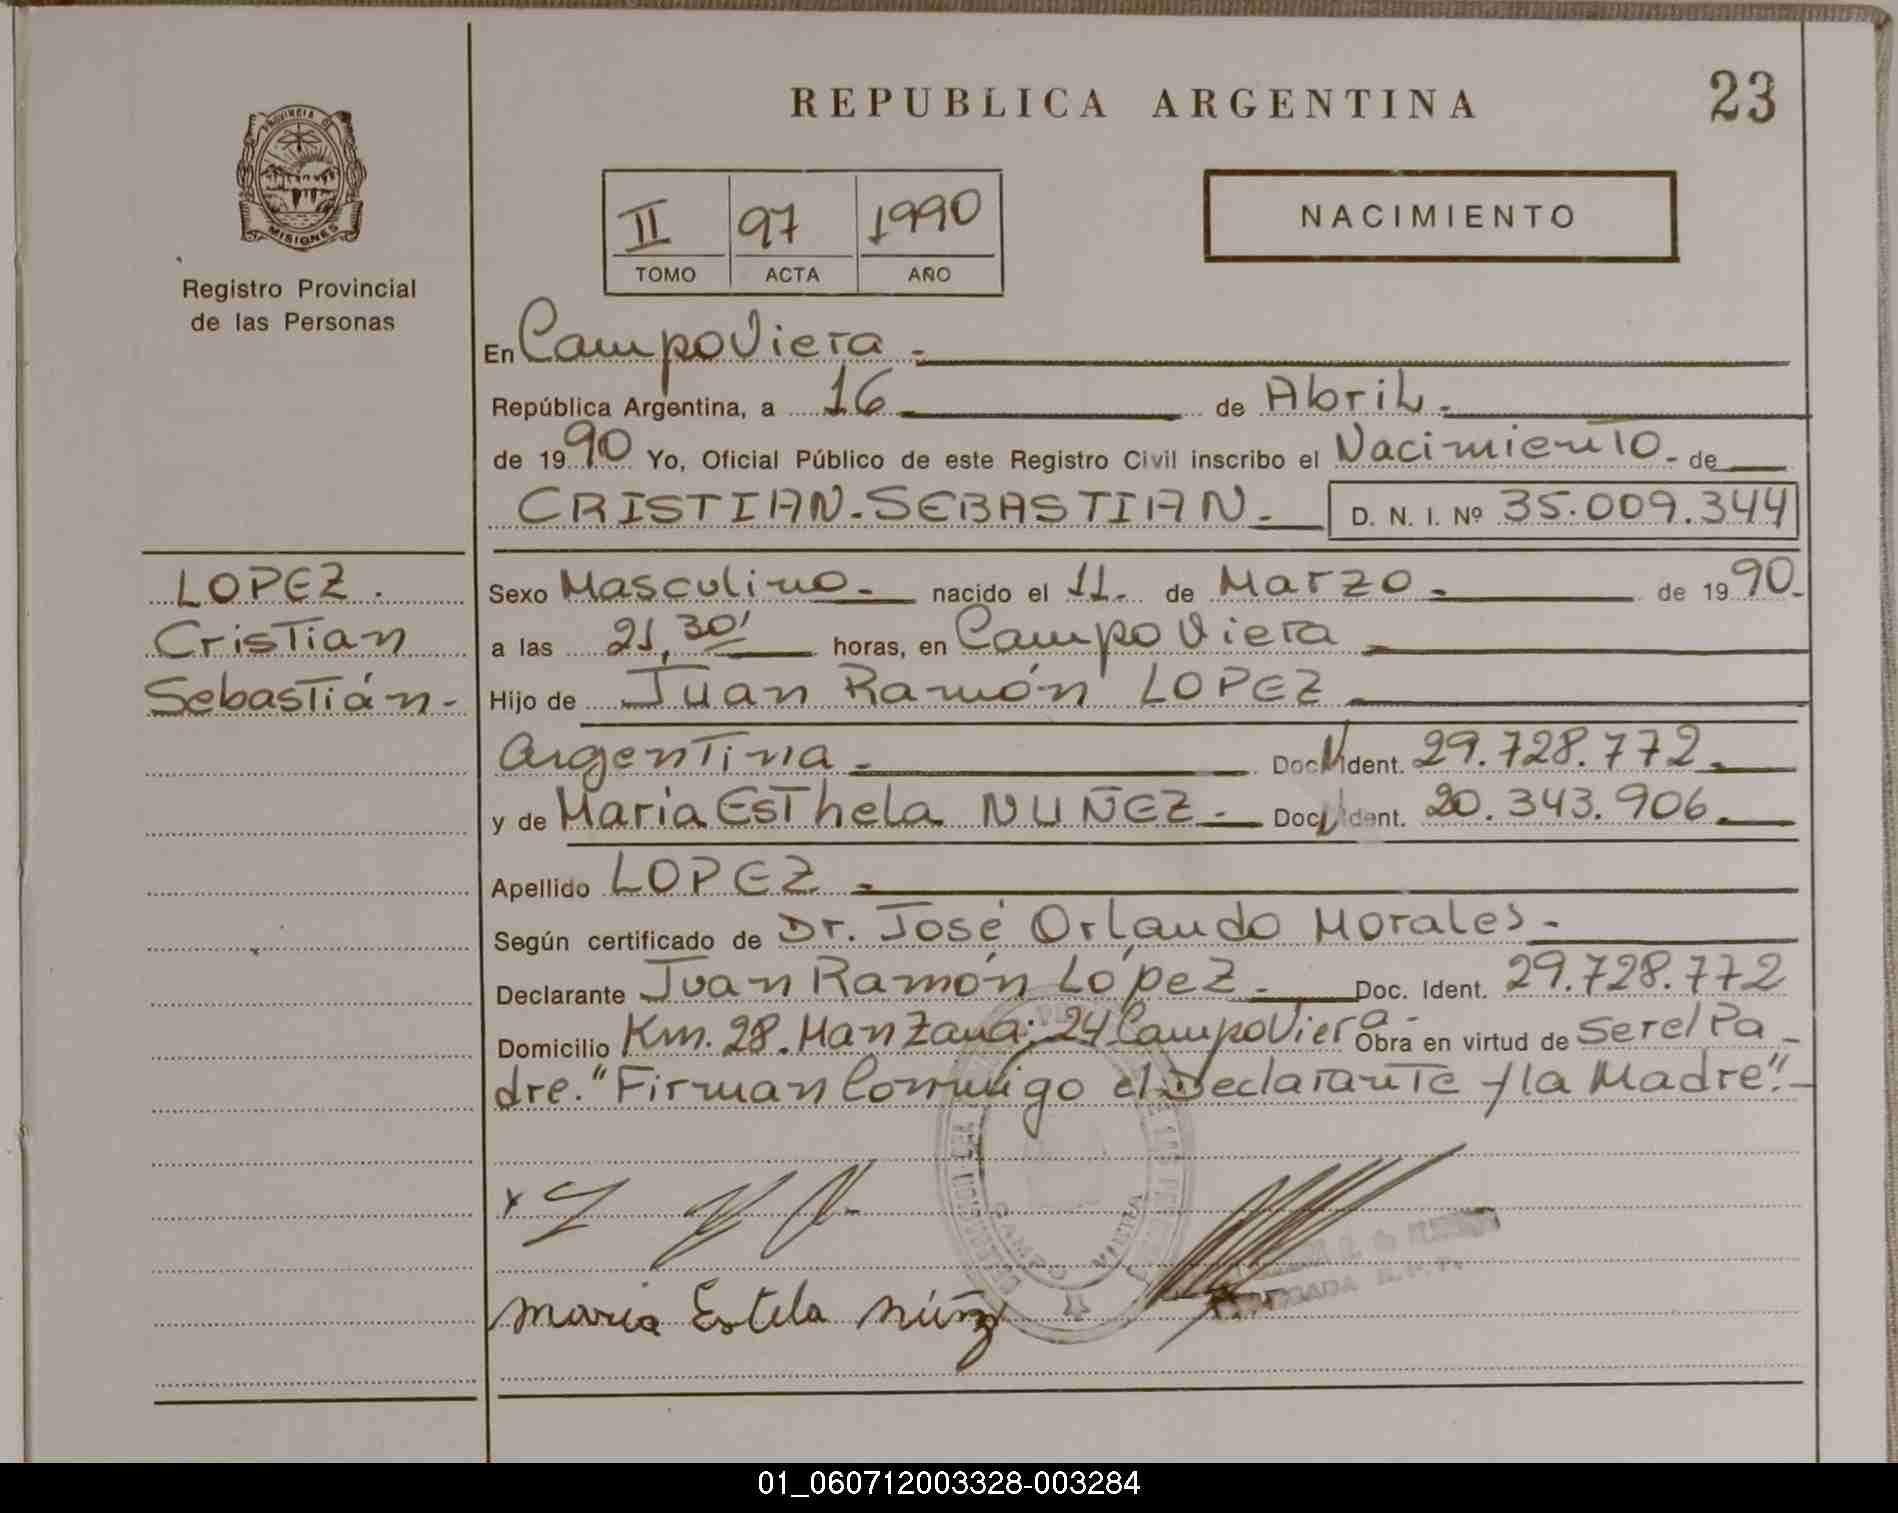 REPUBLICA ARGENTINA
23
PROVINCIA DE
MISIONES
Registro Provincial
de las Personas
II 97 1990
TOMO ACTA AÑO
NACIMIENTO
En Campo Viera.-
República Argentina, a 16 de Abril.-
de 1990 Yo, Oficial Público de este Registro Civil inscribo el Nacimiento- de
CRISTIAN-SEBASTIAN- D. N. I. Nº 35.009.344
LOPEZ.
Cristian
Sebastián-
Sexo Masculino- nacido el 11. de Marzo.- de 1990-
a las 21,30' horas, en Campo Viera
Hijo de Juan Ramón LOPEZ
Argentina.- Doc. Ident. 29.728.772.
y de Maria Esthela NUÑEZ- Doc. Ident. 20.343.906.
Apellido LOPEZ.-
Según certificado de Dr. José Orlando Morales-
Declarante Juan Ramón López- Doc. Ident. 29.728.772
Domicilio Km. 28. Manzana: 24 Campo Viera- Obra en virtud de Ser el Pa-
dre. "Firman Conmigo el Declarante y la Madre".-
CAMPO VIERA
Maria Estela Núñez
01_060712003328-003284